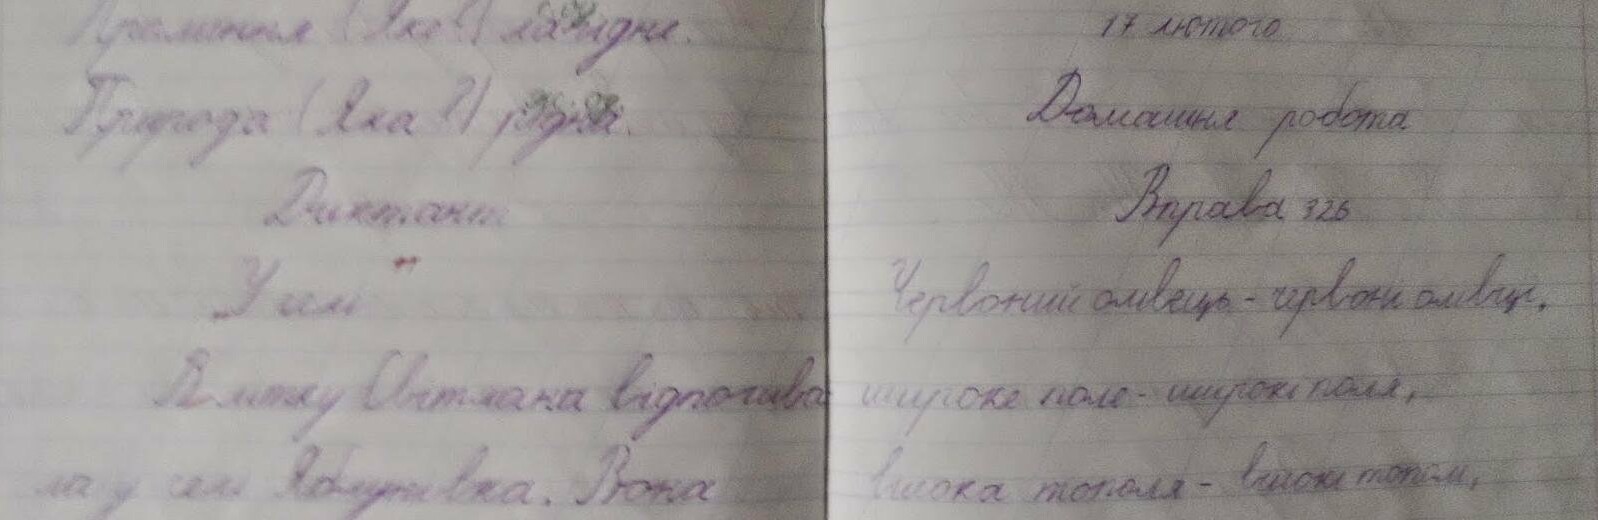 Проміння (Яке?) лагідне.
Природа (Яка?) рідна.
Диктант
У селі
Влітку Світлана відпочива
ла у селі Яблунівка. Вона
17 лютого
Домашня робота
Вправа 326
Червоний олівець - червоні олівці,
широке поле - широкі поля,
висока тополя - високі тополі,